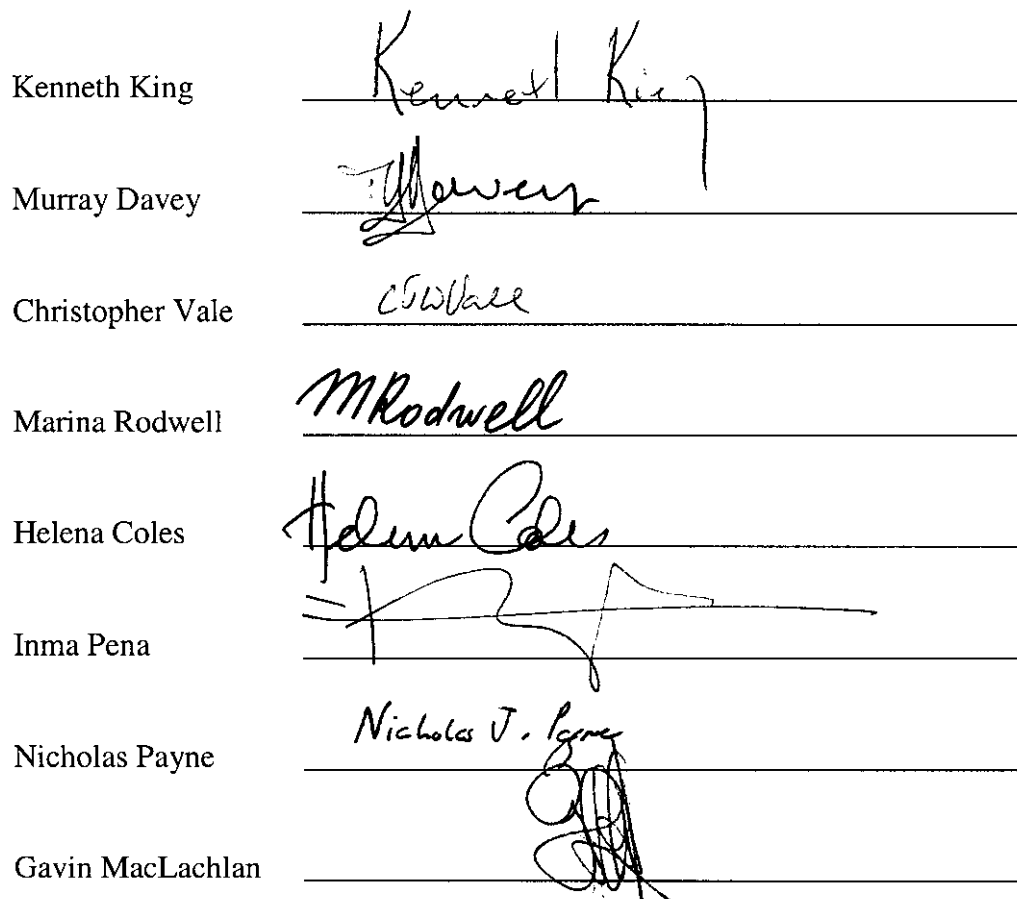 Kenneth King Kenneth King
Murray Davey
Christopher Vale CJWVale
Marina Rodwell MRodwell
Helena Coles Helena Coles
Inma Pena
Nicholas Payne Nicholas J. Payne
Gavin MacLachlan